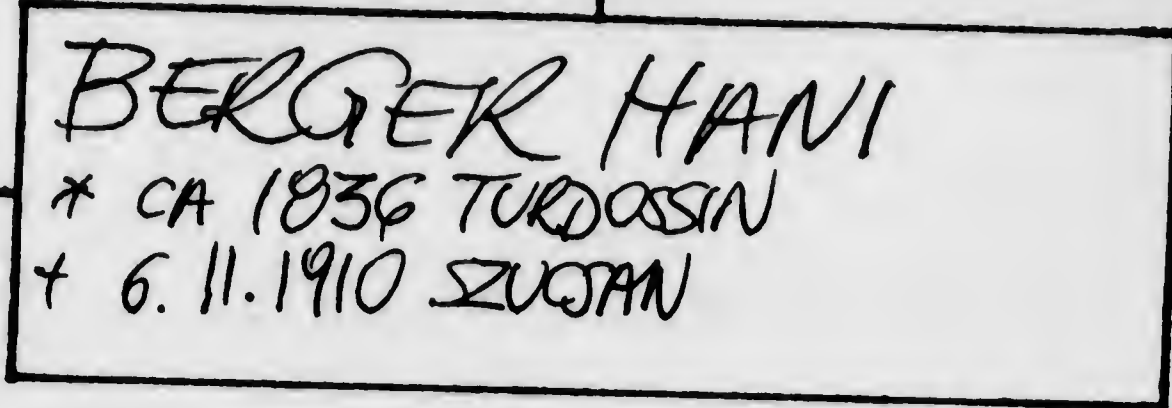 BERGER HANI
* CA 1836 TURDOSSIN
+ 6. 11. 1910 SZUCSAN